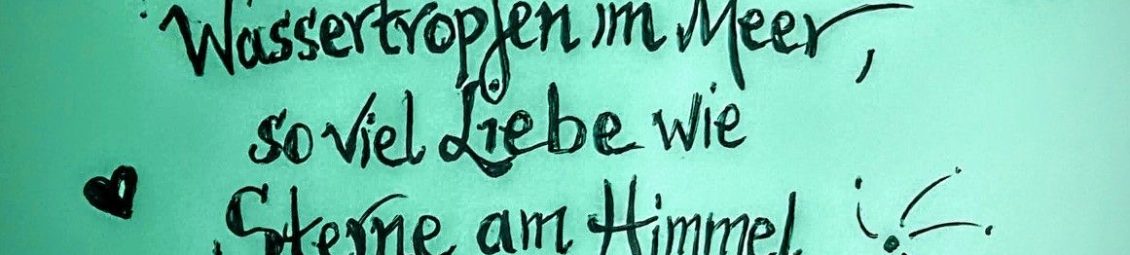 Wassertropfen im Meer,
so viel Liebe wie
Sterne am Himmel